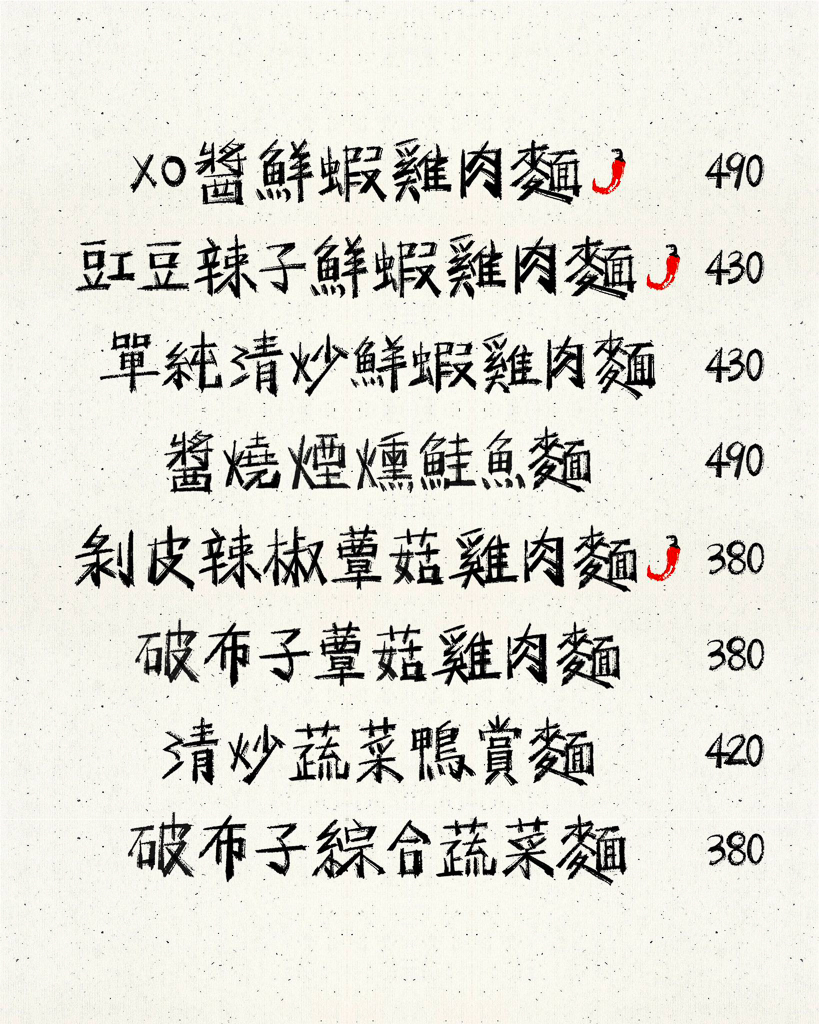 XO醬鮮蝦雞肉麵 490
豇豆辣子鮮蝦雞肉麵 430
單純清炒鮮蝦雞肉麵 430
醬燒煙燻鮭魚麵 490
剝皮辣椒蕈菇雞肉麵 380
破布子蕈菇雞肉麵 380
清炒蔬菜鴨賞麵 420
破布子綜合蔬菜麵 380